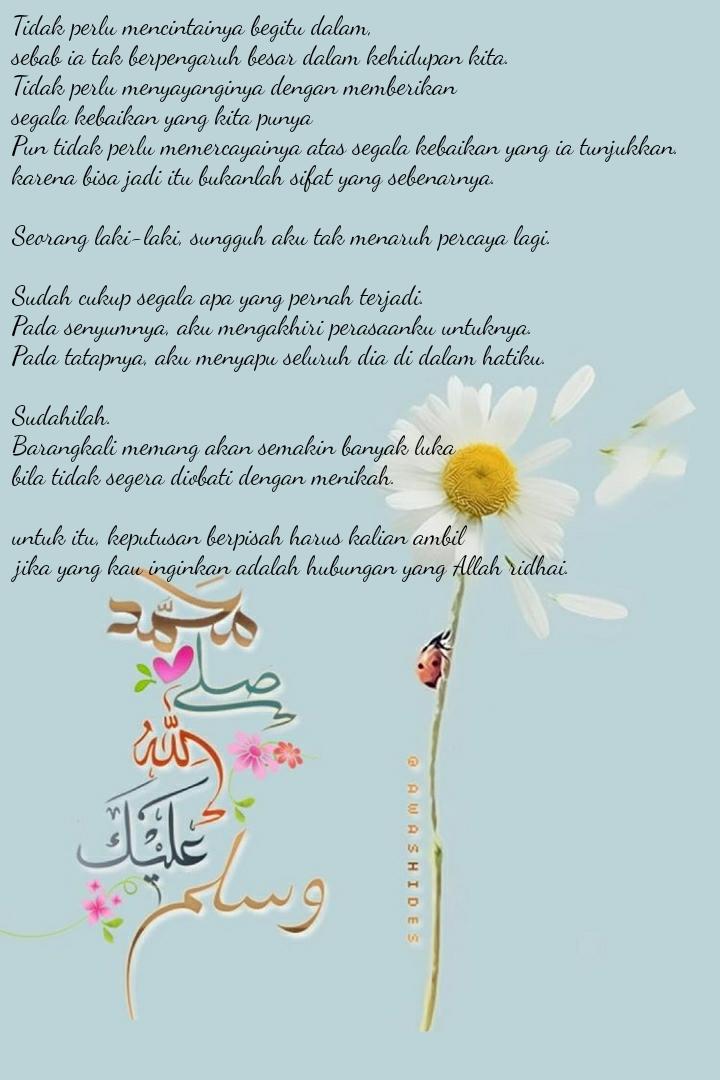 Tidak perlu mencintainya begitu dalam,
sebab ia tak berpengaruh besar dalam kehidupan kita.
Tidak perlu menyayanginya dengan memberikan
segala kebaikan yang kita punya
Pun tidak perlu memercayainya atas segala kebaikan yang ia tunjukkan.
karena bisa jadi itu bukanlah sifat yang sebenarnya.
Seorang laki-laki, sungguh aku tak menaruh percaya lagi.
Sudah cukup segala apa yang pernah terjadi.
Pada senyumnya, aku mengakhiri perasaanku untuknya.
Pada tatapnya, aku menyapu seluruh dia di dalam hatiku.
Sudahilah.
Barangkali memang akan semakin banyak luka
bila tidak segera diobati dengan menikah.
untuk itu, keputusan berpisah harus kalian ambil
jika yang kau inginkan adalah hubungan yang Allah ridhai.
محمد
صلى
الله
عليك
وسلم
@AWASHIDES